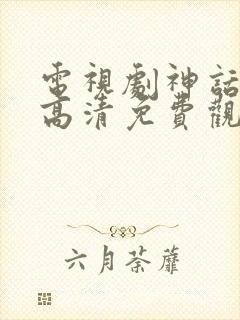 電視劇神話
高清免費觀
六月荼蘼